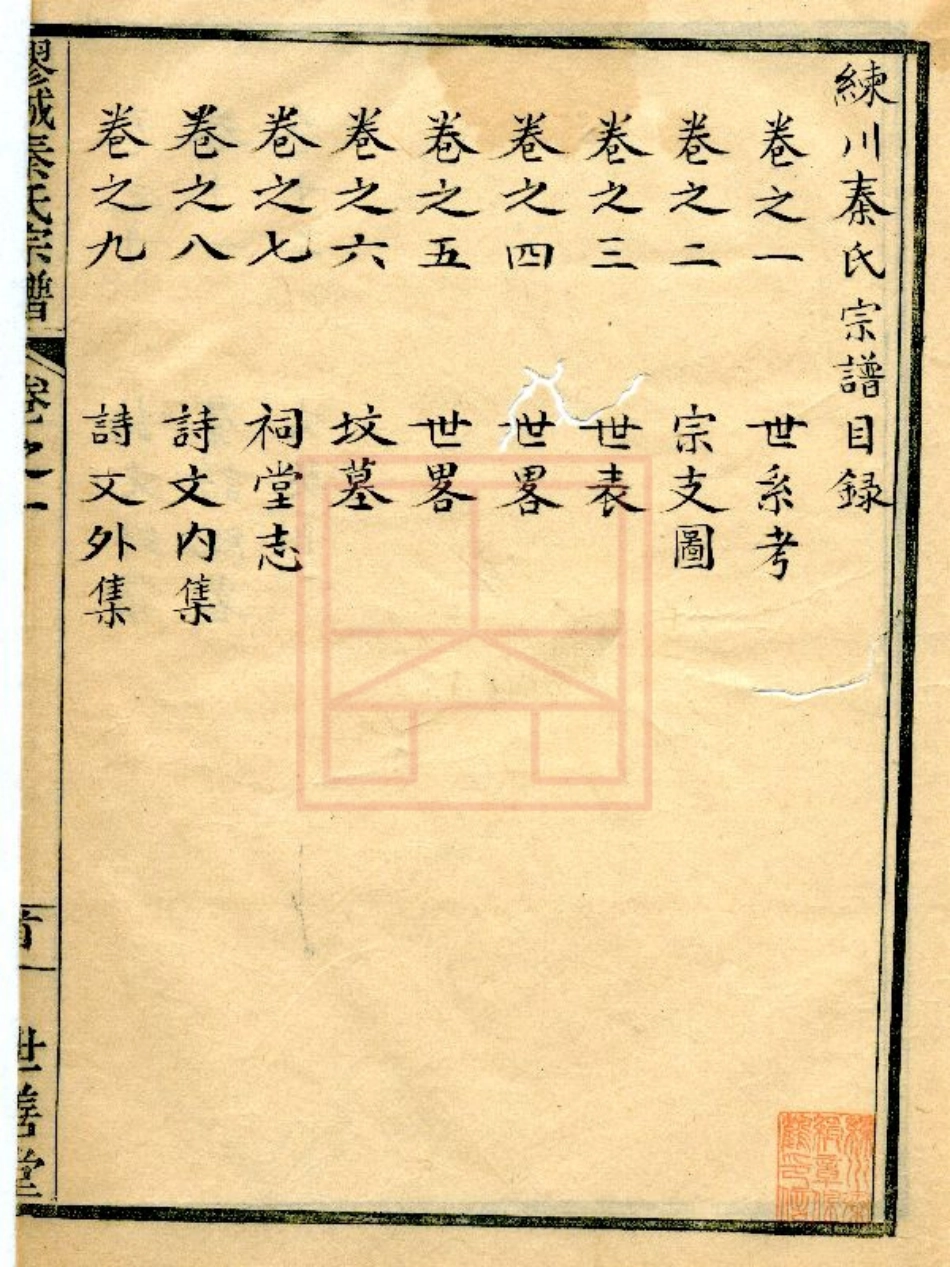 練川秦氏宗譜目録
卷之一 世系考
卷之二 宗支圖
卷之三 世表
卷之四 世畧
卷之五 世畧
卷之六 坟墓
卷之七 祠堂志
卷之八 詩文内集
卷之九 詩文外集
城秦氏宗譜 卷之一 首一 世善堂